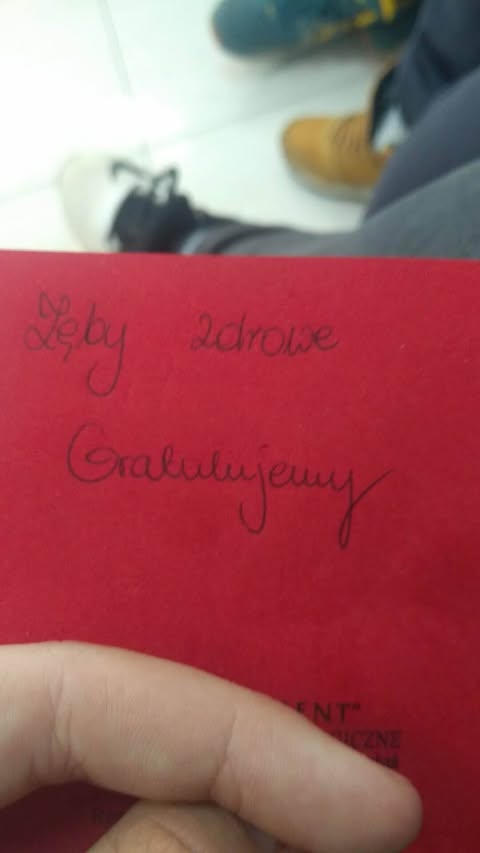 Zęby zdrowe
Gratulujemy
ENT"